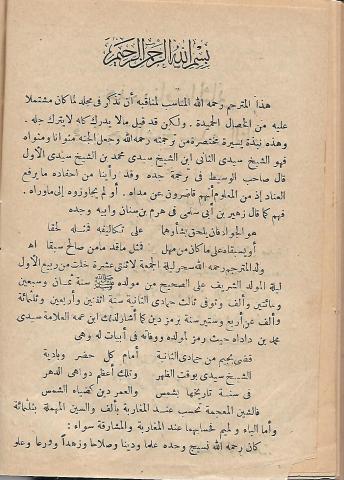 بسم الله الرحمن الرحيم
هذا المترجم رحمه الله المناسب لمناقبه أن تذكر فى مجلد لما كان مشتملا
عليه من الخصال الحميدة . ولكن قد قيل مالا يدرك كله لا يترك جله .
وهذه نبذة يسيرة مختصرة من ترجمته رحمه الله وجعل الجنة مثواه
فهو الشيخ سيدى الثانى ابن الشيخ سيدى محمد بن الشيخ سيدى الأول
قال صاحب الوسيط فى ترجمة جده وقد رأينا من أحفاده ما يرفع
العناد إذ من المعلوم أنهم قاصرون عن مداه . أو لم يجاوزوه إلى ماوراه .
فهم كما قال زهير بن أبى سلمى فى هرم بن سنان وأبيه وجده
هو الجواد فإن يلحق بشأوهما على تكاليفه فمثله لحقا
أو يسبقاه على ما كان من مهل فمثل ما قدما من صالح سبقا اهـ
ولد المترجم رحمه الله سحر ليلة الجمعة لاثنتى عشرة خلت من ربيع الأول
ليلة المولد الشريف على الصحيح من مولده صلى الله عليه وسلم سنة ثمان وسبعين
ومائتين وألف وتوفى ثالث جمادى الثانية سنة اثنتين وأربعين وثلثمائة
وألف عن أربع وستين سنة برمز دين كما أشار لذلك ابن عمه العلامة سيدى
محمد بن داداه حيث رمز لمولده ووفاته فى أبيات له وهى
فقضى بجيم من جمادى الثانية أمام كل حضر وبادية
الشيخ سيدى بوقت الظهر وتلك أعظم دواهى الدهر
فى سنة تاريخها بشمس والعمر دين كضياء الشمس
فالشين المعجمة تحسب عند المغاربة بألف والسين المهملة بثلثمائة
وأما الباء والميم فحسابهما عند المغاربة والمشارقة سواء :
كان رحمه الله نسيج وحده علما ودينا وصلاحا وزهدا وورعا وعلو